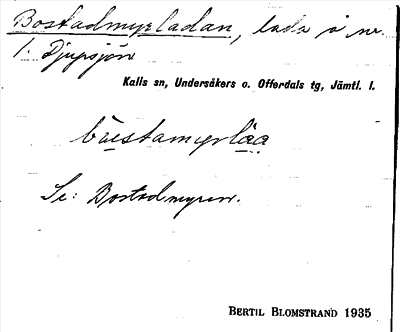 Bostadmyrladan, lada å nr
1. Djupsjön
Kalls sn, Undersåkers o. Offerdals tg, Jämtl. l.
båestamyrlåa
Se: Bostadmyren.
BERTIL BLOMSTRAND 1935